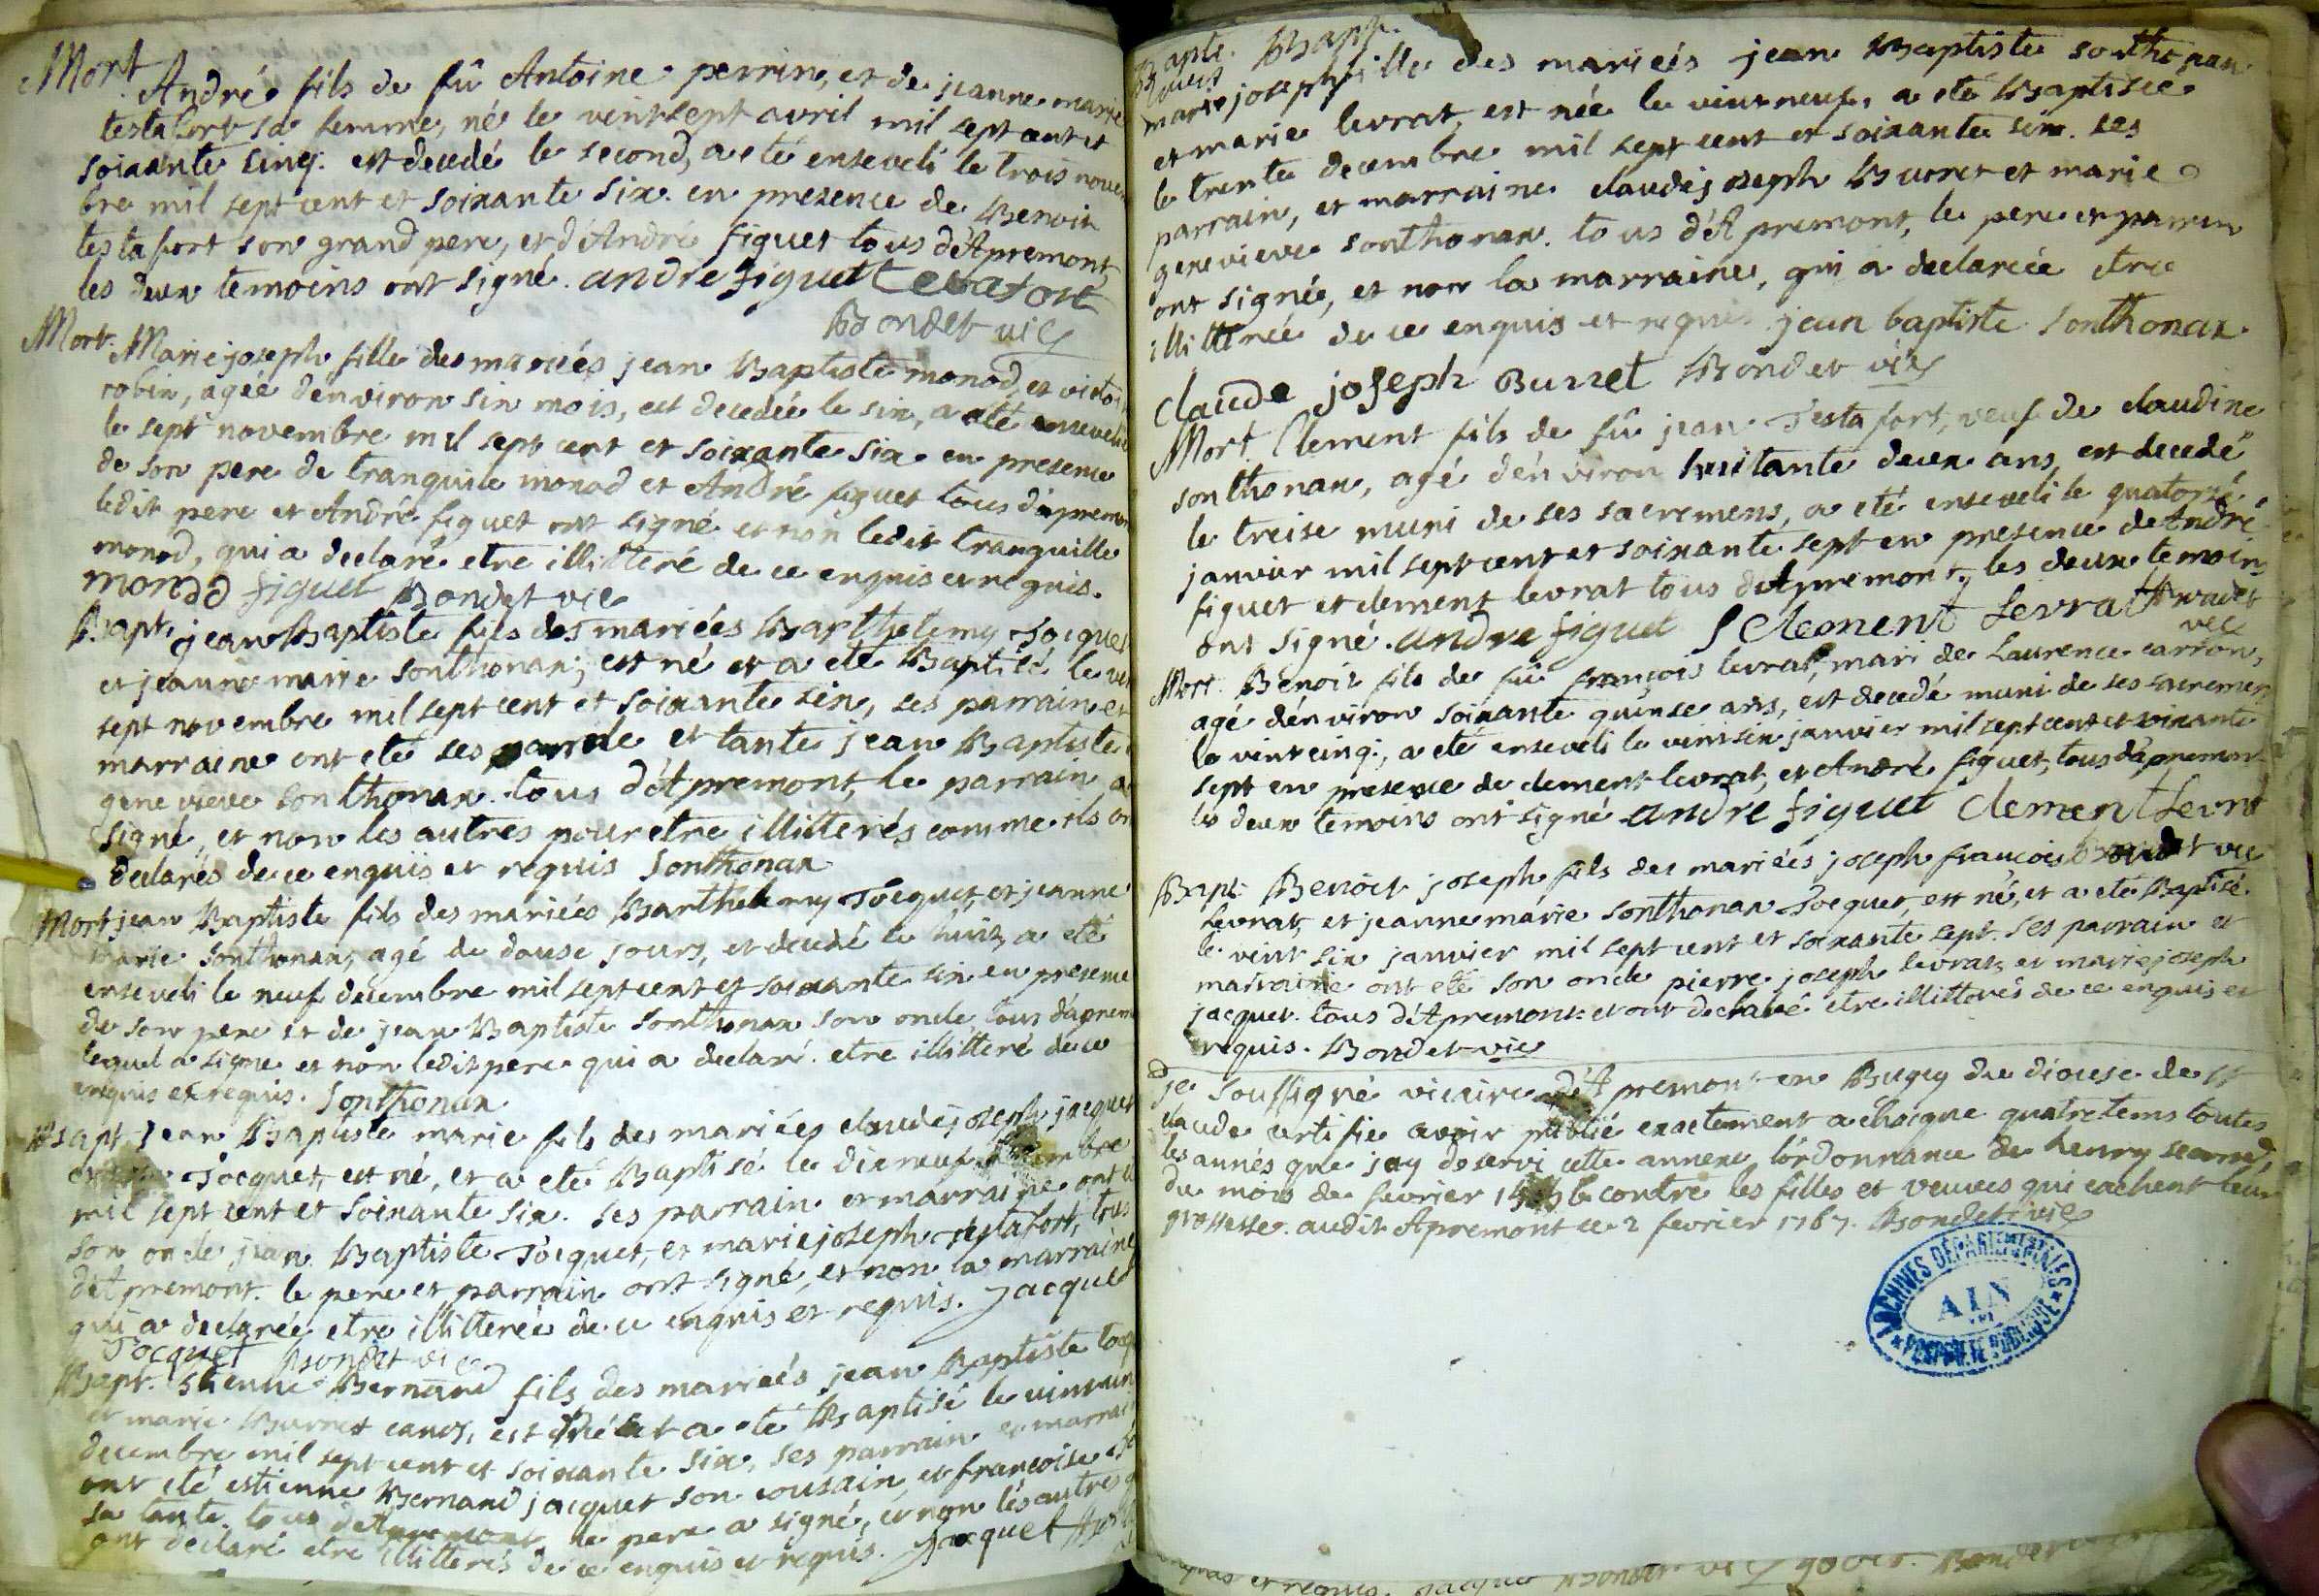 Mort André fils de fû Antoine perrin, et de jeanne marie
testafort sa femme, né le vintsept avril mil sept cent et
soixante cinq. est decedé le second, a eté enseveli le trois novem
bre mil sept cent et soixante six. en presence de Benoit
testafort son grand pere, et d'André figuet tous d'Apremont
les deux temoins ont signé. andre figuet
Bondet vic
Mort. Marie joseph fille des mariées jean Baptiste monod, et victoi
robin, agée d'environ six mois, est decedée le six, a eté ensevelie
le sept novembre mil sept cent et soixante six en presence
de son pere de tranquile monod et André figuet tous d'apremon
ledit pere et André figuet ont signé et non ledit tranquille
monod, qui a declaré etre illitteré de ce enquis et requis.
monod figuet Bondet vic
Bapt. jean Baptiste fils des mariées Barthelemy Tocquet
et jeanne marie Sonthonax; est né et a eté Baptisé le vin
sept novembre mil sept cent et soixante six, ses parrain et
marraine ont eté ses oncle et tante jean Baptiste
genevieve Sonthonax. tous d'Apremont, le parrain a
signé, et non les autres pour etre illitterés comme ils on
declarés de ce enquis et requis Sonthonax
Mort jean Baptiste fils des mariées Barthelemy Tocquet, et jeanne
marie Sonthonax, agé de douse jours, est decedé le huit, a eté
enseveli le neuf decembre mil sept cent et soixante six en presence
de son pere et de jean Baptiste Sonthonax son oncle, tous d'aprem
lequel a signé et non ledit pere qui a declaré etre illitteré de ce
enquis et requis. Sonthonax
Bapt. Jean Baptiste marie fils des mariées claude joseph jacquet
Tocquet, est né, et a eté Baptisé le dixneuf
mil sept cent et soixante six. ses parrain et marraine ont
son oncle jean Baptiste Tocquet, et marie joseph testafort, tous
d'Apremont. le pere et parrain ont signé, et non la marraine
qui a declarée etre illitterée de ce enquis et requis. Jacquet
Tocquet Bondet vic
Bapt. Etienne Bernard fils des mariées jean Baptiste
et marie Burret est né et a eté Baptisé le vint
decembre mil sept cent et soixante six, ses parrain et marrai
ont eté estienne Bernard jacquet son cousain, et francoise
sa tante. tous d'Apremont, le pere a signé, et non les autres
ont declaré etre illitterés de ce enquis et requis. Jacquet
Bapt.
marie joseph fille des mariées jean Baptiste sonthonax
et marie levrat, est née le vint neuf, a eté Baptisée
le trente decembre mil sept cent et soixante six. ses
parrain, et marraine claude joseph Burret et marie
genevieve sonthonax. tous d'Apremont, le pere et parrain
ont signée, et non la marraine, qui a declarée etre
illitterée de ce enquis et requis. jean baptiste Sonthonax
Claude joseph Burret Bondet vic
Mort. Clement fils de fû jean Testafort, veuf de claudine
sonthonax, agé d'environ huitante deux ans, est decedé
le treise muni de ses sacremens, a eté enseveli le quatorse
janvier mil sept cent et soixante sept en presence de André
figuet et clement levrat tous d'Apremont, les deux temoins
ont signé. andre figuet Clement Levrat Bondet
vic
Mort. Benoit fils de fû françois levrat, mari de Laurence carron,
agé d'environ soixante quinse ans, est decedé muni de ses sacremen
le vintcinq., a eté enseveli le vintsix janvier mil sept cent et soixante
sept en presence de clement levrat, et André figuet, tous d'apremont
les deux temoins ont signé andre figuet Clement Levrat
Bondet vic
Bapt. Benoit joseph fils des mariées joseph francois
Levrat, et jeanne marie Sonthonax Tocquet, est né, et a eté Baptisé
le vint six janvier mil sept cent et soixante sept. ses parrain et
marraine ont eté son oncle pierre joseph levrat, et marie joseph
jacquet. tous d'Apremont et ont declaré etre illitterés de ce enquis et
requis. Bondet vic
je soussigné vicaire d'Apremont en Bugey du diocese de st
claude certifie avoir publié exactement a chaque quatretems toutes
les annés que jay deservi cette annexe l'ordonnance de henry second,
du mois de fevrier contre les filles et veuves qui cachent leur
grossesse. audit Apremont ce 2 fevrier 1767. Bondet vic
ARCHIVES DÉPARTEMENTALES
AIN